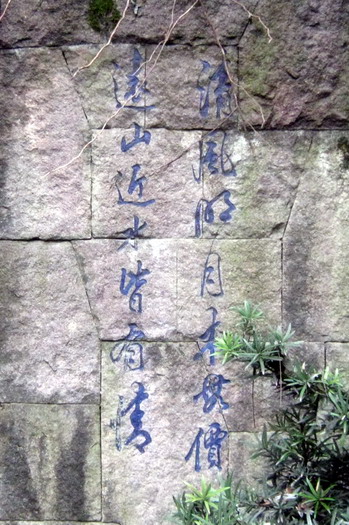 清風明月本無價
遠山近水皆有情